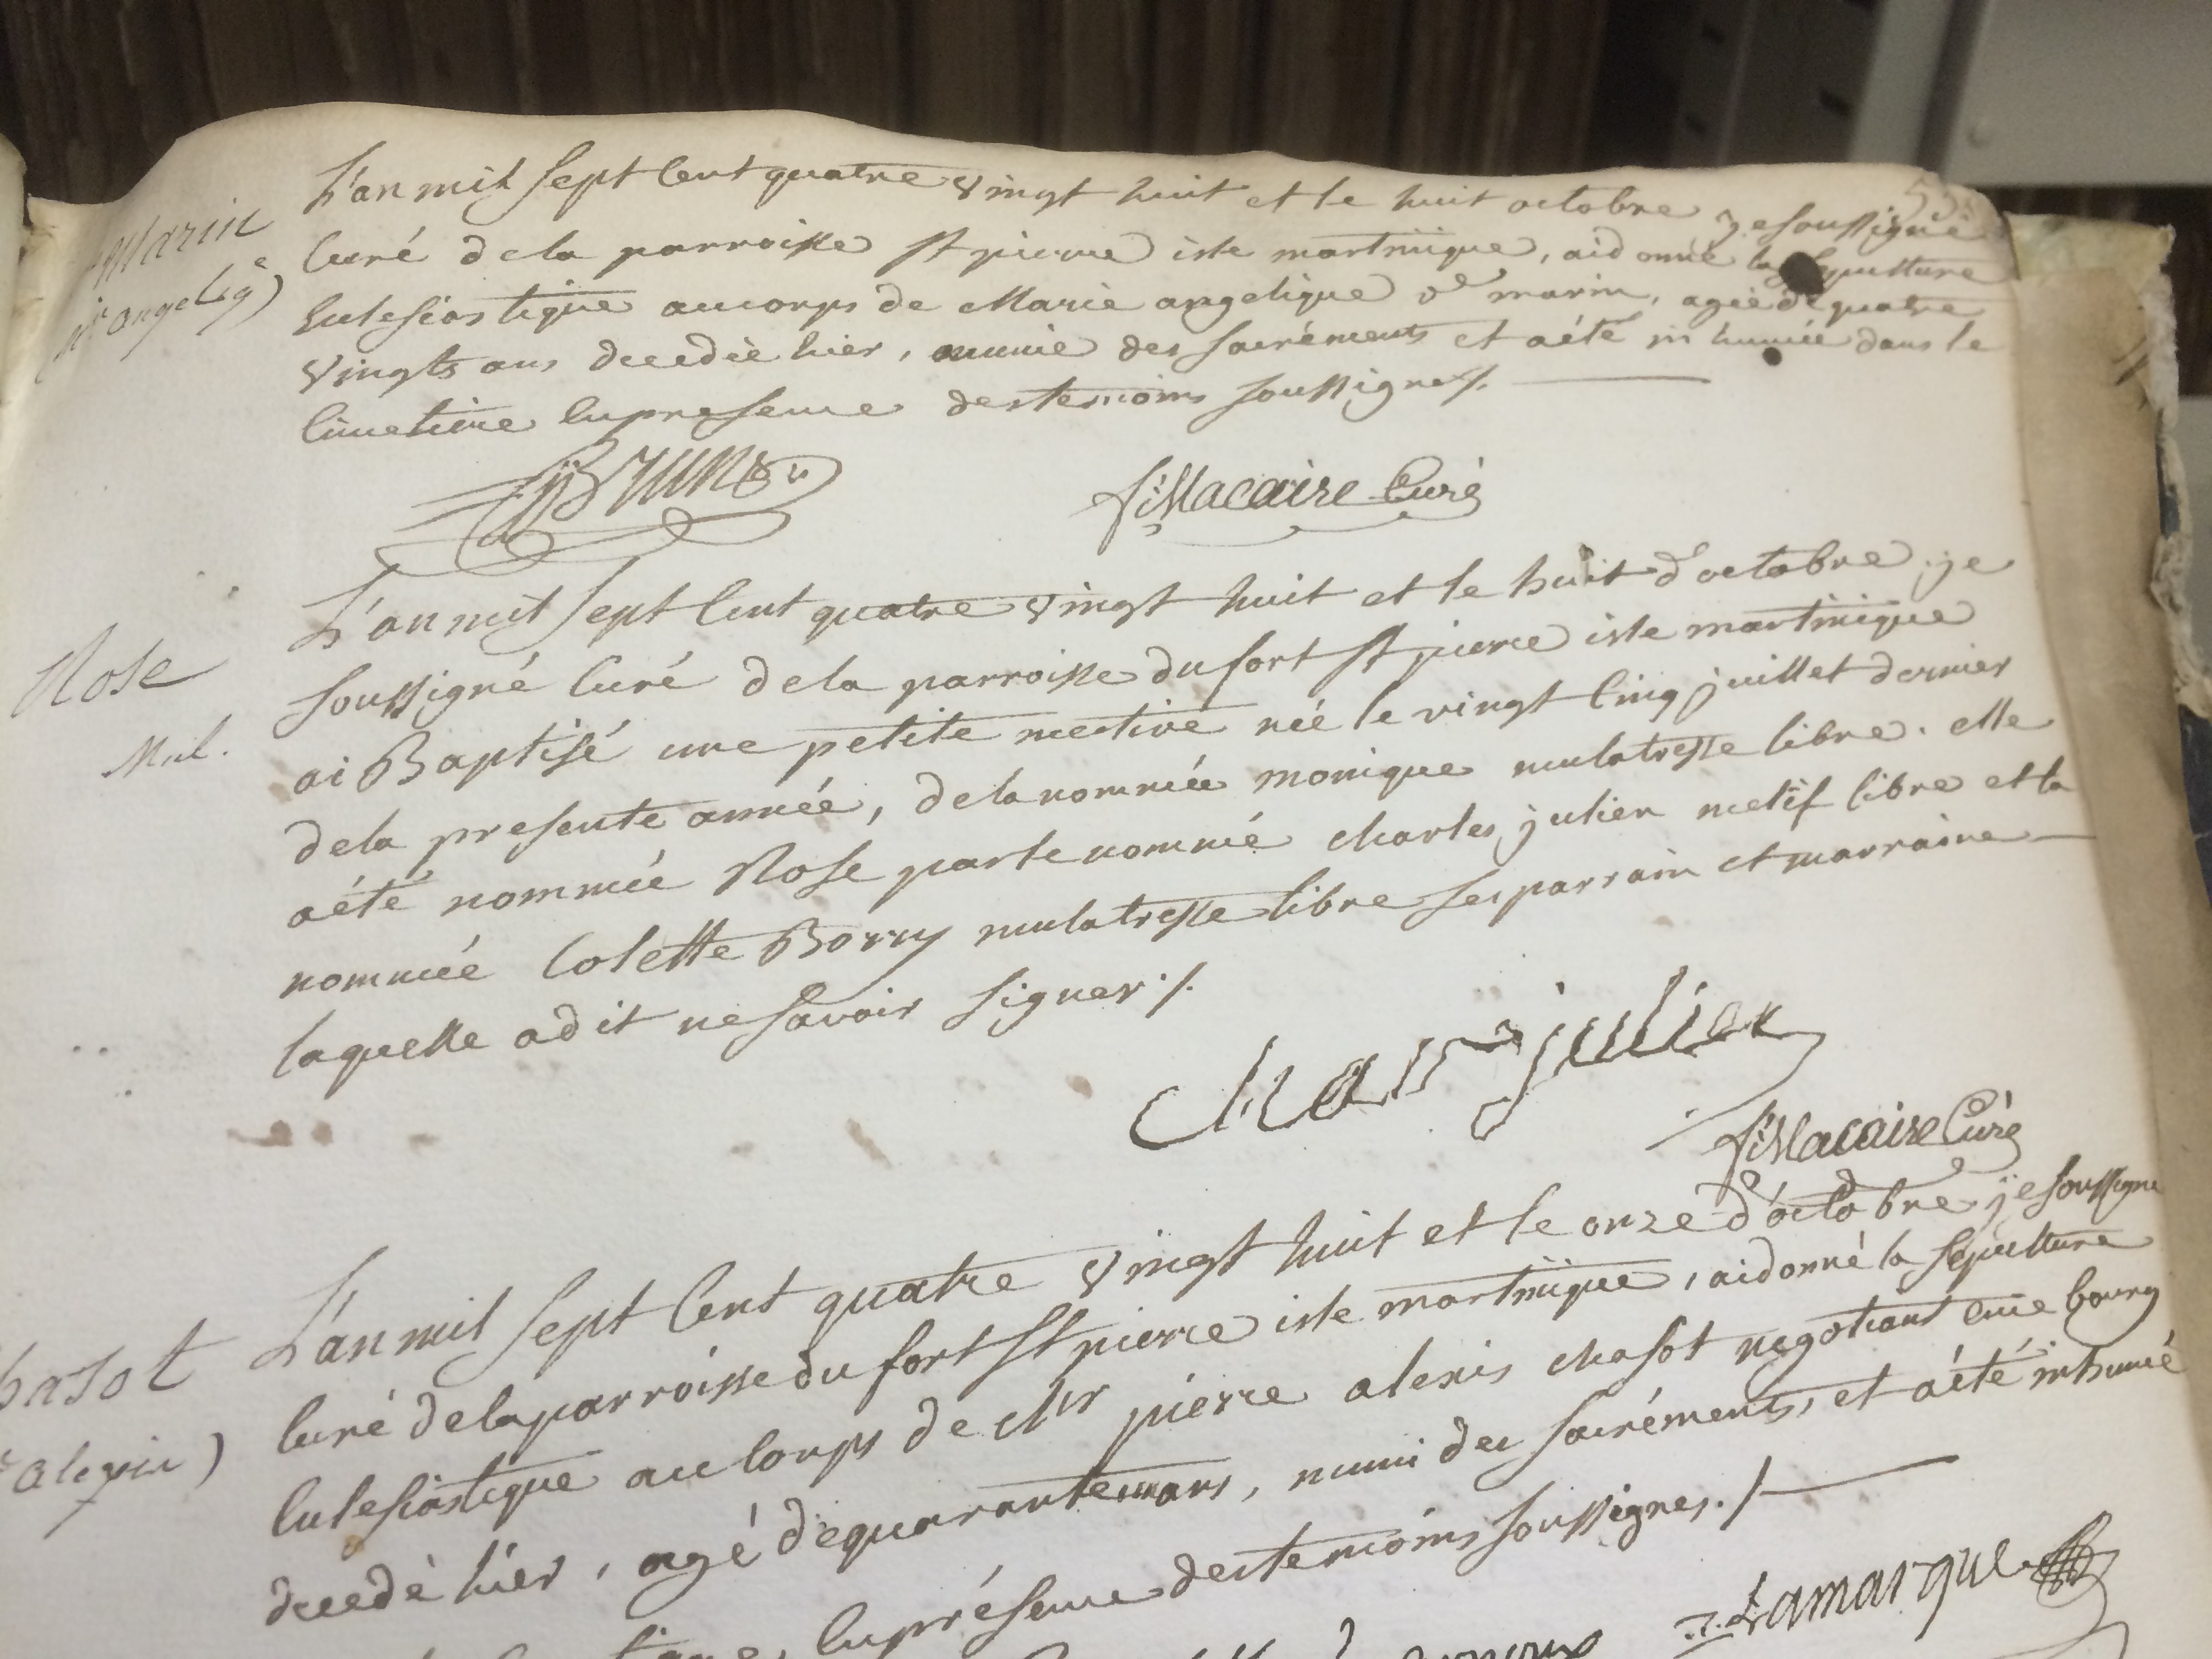 L'an mil sept Cent quatre vingt huit et le huit octobre je soussigné
Curé de la parroisse St pierre isle martinique, ai donné la sepulture
Eclesiastique au corps de Marie angelique de marin, agée de quatre
vingts ans decedée hier, munie des sacréments et a été in humée dans le
Cimetiere En presence des temoins soussignés /.
Marin
angeliq)
Brunet
f: Macaire Curé
L'an mil sept Cent quatre vingt huit et le huit d'octobre je
soussigné Curé de la parroisse du fort St pierre isle martinique
ai Baptisé une petite mective née le vingt Cinq juillet dernier
Rose
Mil.
de la presente année, de la nommée monique mulatresse libre. elle
a été nommée Rose par le nommé charles julien metif libre et la
nommée Colette Borry mulatresse libre ses parrain et marraine
laquelle a dit ne savoir signer /.
Char julien
f: Macaire Curé
L'an mil sept Cent quatre vingt huit et le onze d'octobre je soussigné
Curé de la parroisse du fort St pierre isle martinique, ai donné la sepulture
Eclesiastique au Corps de Mr pierre alexis chasot negotiant en ce bourg
decedé hier, agé de quarante un ans, muni des sacréments, et a été inhumé
hasot
alexis)
En présence des temoins soussignés. /
Lamarque